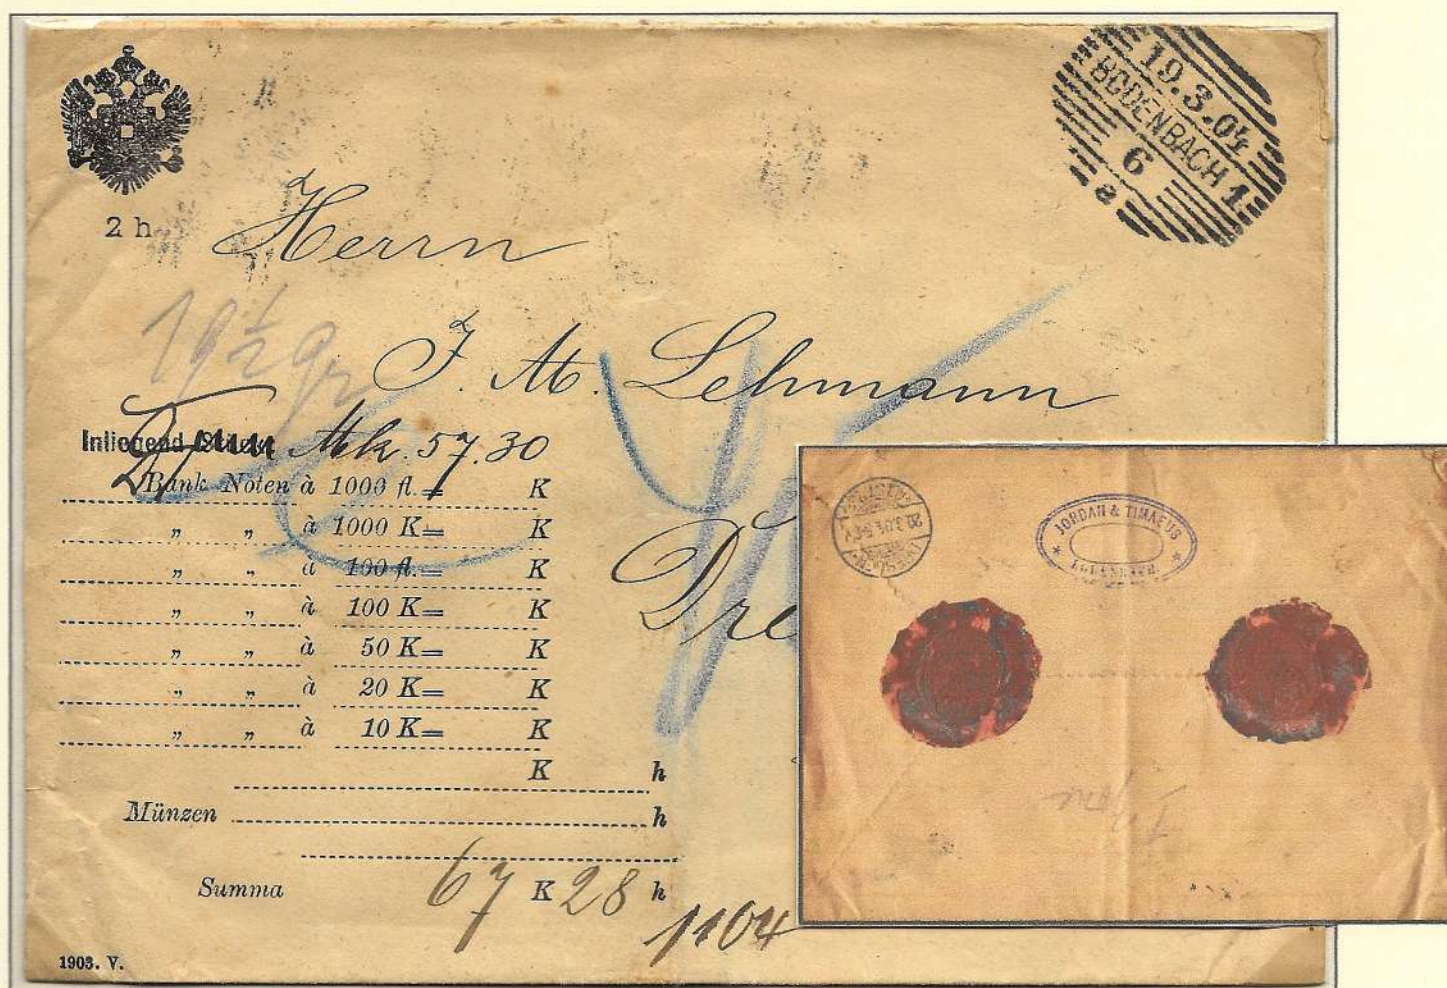 19.3.04
BODENBACH 1
6
a
2 h
Herrn
19½ gr
J. M. Lehmann
Inliegend
Mk. 57.30
Bank Noten à 1000 fl.= K
„ „ à 1000 K= K
„ „ à 100 fl.= K
„ „ à 100 K= K
„ „ à 50 K= K
„ „ à 20 K= K
„ „ à 10 K= K
K h
Münzen h
Summa 67 K 28 h
1104
1903. V.
Dre
20.3.04
JORDAN & TIMAEUS
BODENBACH